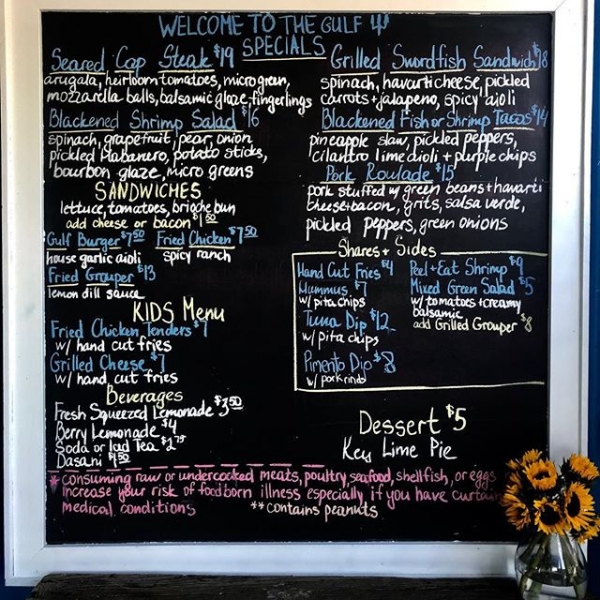 WELCOME TO THE GULF
SPECIALS
Seared Cap Steak $19
arugala, heirloom tomatoes, micro green,
mozzarella balls, balsamic glaze, fingerlings
Blackened Shrimp Salad $16
spinach, grapefruit, pear, onion
pickled habanero, potato sticks,
bourbon glaze, micro greens
SANDWICHES
lettuce, tomatoes, brioche bun
add cheese or bacon $1.50
Gulf Burger $7.50 Fried Chicken $7.50
house garlic aioli spicy ranch
Fried Grouper $13
lemon dill sauce
KIDS Menu
Fried Chicken Tenders $7
w/ hand cut fries
Grilled Cheese $7
w/ hand cut fries
Beverages
Fresh Squeezed Lemonade $3.50
Berry Lemonade $4
Soda or Iced Tea $2.75
Dasani $1.50
Grilled Swordfish Sandwich $18
spinach, havarti cheese, pickled
carrots + jalapeno, spicy aioli
Blackened Fish or Shrimp Tacos $14
pineapple slaw, pickled peppers,
cilantro lime aioli + purple chips
Pork Roulade $15
pork stuffed w/ green beans + havarti
cheese + bacon, grits, salsa verde,
pickled peppers, green onions
Shares + Sides
Hand Cut Fries $4
Hummus $7
w/ pita chips
Tuna Dip $12
w/ pita chips
Pimento Dip $8
w/ pork rinds
Peel + Eat Shrimp $9
Mixed Green Salad $5
w/ tomatoes + creamy
balsamic
add Grilled Grouper $8
Dessert $5
Key Lime Pie
* consuming raw or undercooked meats, poultry, seafood, shellfish, or eggs
increase your risk of foodborn illness especially if you have curtain
medical conditions **contains peanuts